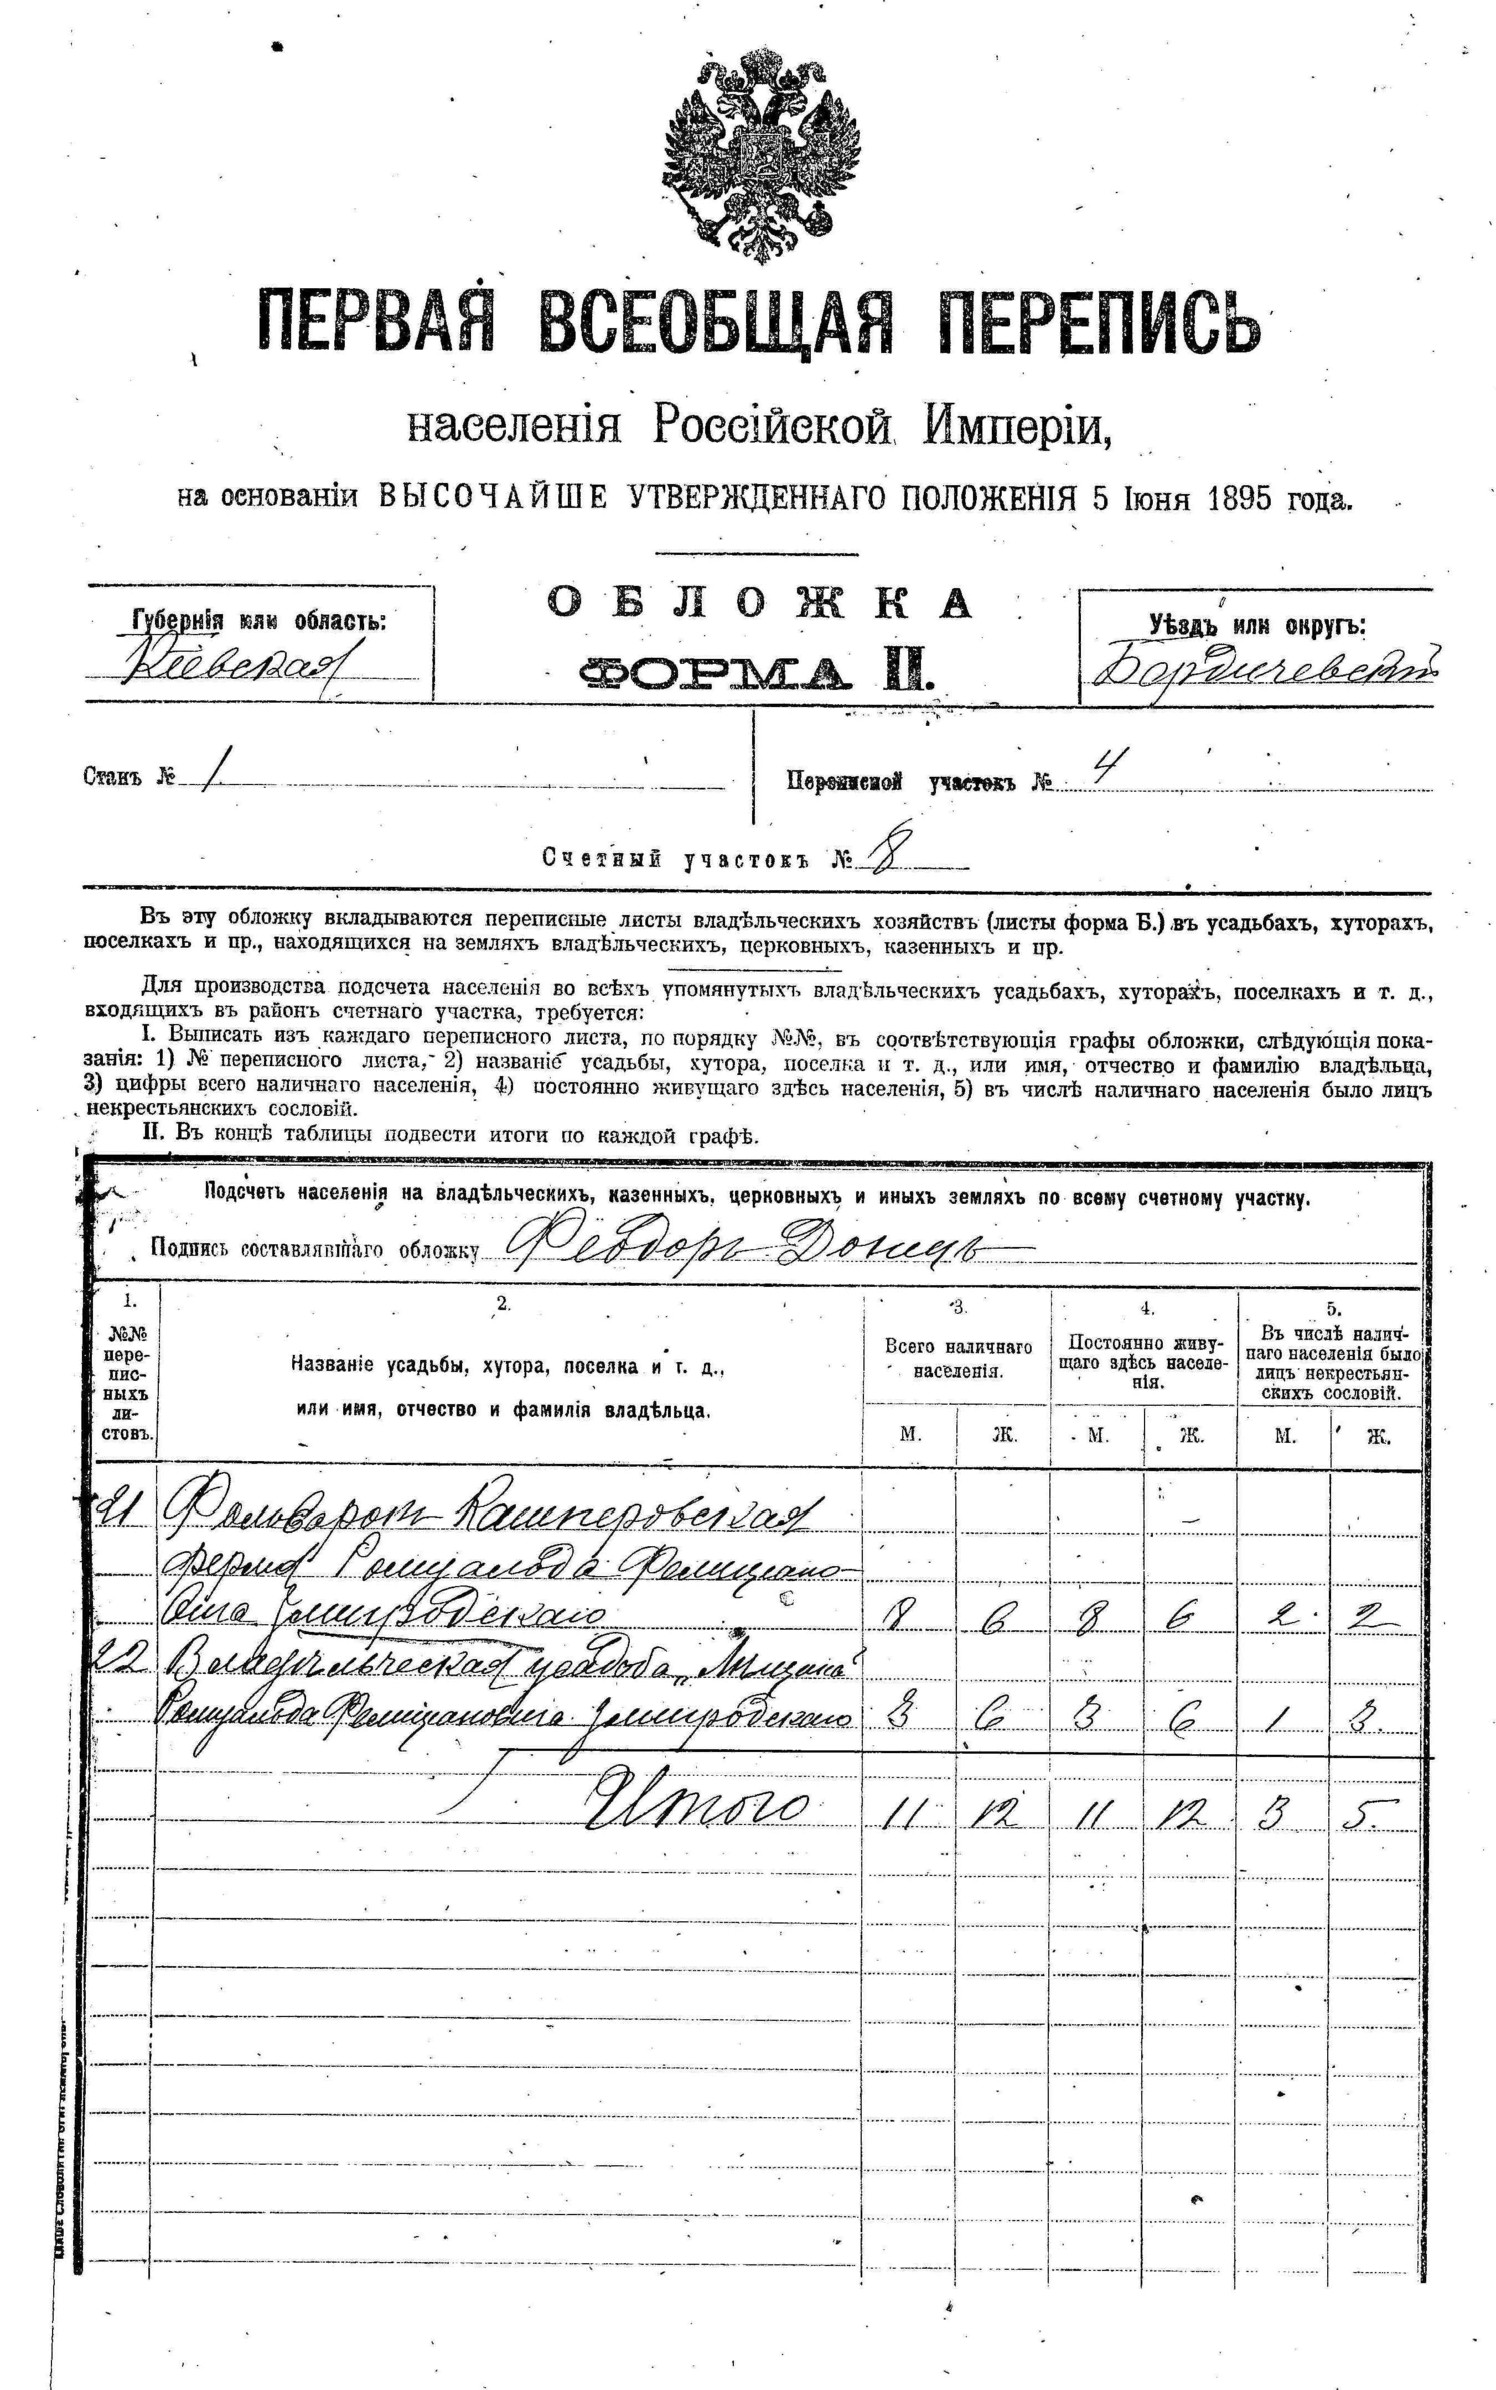 ПЕРВАЯ ВСЕОБЩАЯ ПЕРЕПИСЬ
населенія Россійской Имперіи,
на основаніи ВЫСОЧАЙШЕ УТВЕРЖДЕННАГО ПОЛОЖЕНІЯ 5 Іюня 1895 года.
ОБЛОЖКА
ФОРМА II.
Губернія или область:
Кіевская
Уѣздъ или округъ:
Бердичевскій
Станъ № 1
Переписной участокъ № 4
Счетный участокъ № 8
Въ эту обложку вкладываются переписные листы владѣльческихъ хозяйствъ (листы форма Б.) въ усадьбахъ, хуторахъ,
поселкахъ и пр., находящихся на земляхъ владѣльческихъ, церковныхъ, казенныхъ и пр.
Для производства подсчета населенія во всѣхъ упомянутыхъ владѣльческихъ усадьбахъ, хуторахъ, поселкахъ и т. д.,
входящихъ въ районъ счетнаго участка, требуется:
I. Выписать изъ каждаго переписного листа, по порядку №№, въ соотвѣтствующія графы обложки, слѣдующія пока-
занія: 1) № переписного листа, 2) названіе усадьбы, хутора, поселка и т. д., или имя, отчество и фамилію владѣльца,
3) цифры всего наличнаго населенія, 4) постоянно живущаго здѣсь населенія, 5) въ числѣ наличнаго населенія было лицъ
некрестьянскихъ сословій.
II. Въ концѣ таблицы подвести итоги по каждой графѣ.
Подсчетъ населенія на владѣльческихъ, казенныхъ, церковныхъ и иныхъ земляхъ по всему счетному участку.
Подпись составлявшаго обложку Феодоръ Донецъ
1. 2. 3. 4. 5.
№№ пере-
пис-
ныхъ
ли-
стовъ.
Названіе усадьбы, хутора, поселка и т. д.,
или имя, отчество и фамилія владѣльца.
Всего наличнаго
населенія.
Постоянно живу-
щаго здѣсь населе-
нія.
Въ числѣ налич-
наго населенія было
лицъ некрестьян-
скихъ сословій.
М. Ж. М. Ж. М. Ж.
21 Фольварокъ Кашперовская
ферма Ромуальда Фелиціано-
вича 8 6 8 6 2 2
22 Владѣльческая усадьба
Ромуальда Фелиціановича 3 6 3 6 1 3.
Итого 11 12 11 12 3 5.